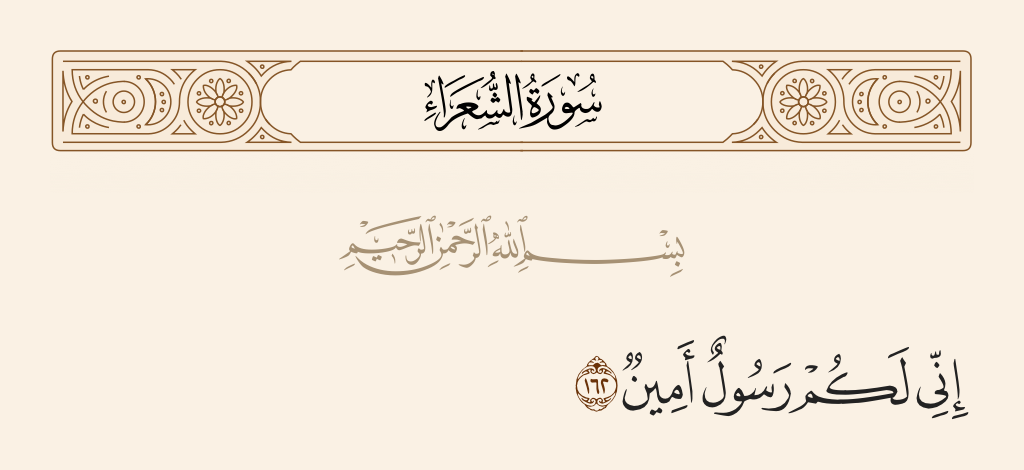 سُورَةُ الشُّعَرَاءِ
بِسْمِ ٱللَّهِ ٱلرَّحْمَٰنِ ٱلرَّحِيمِ
إِنِّي لَكُمْ رَسُولٌ أَمِينٌ ١٦٢